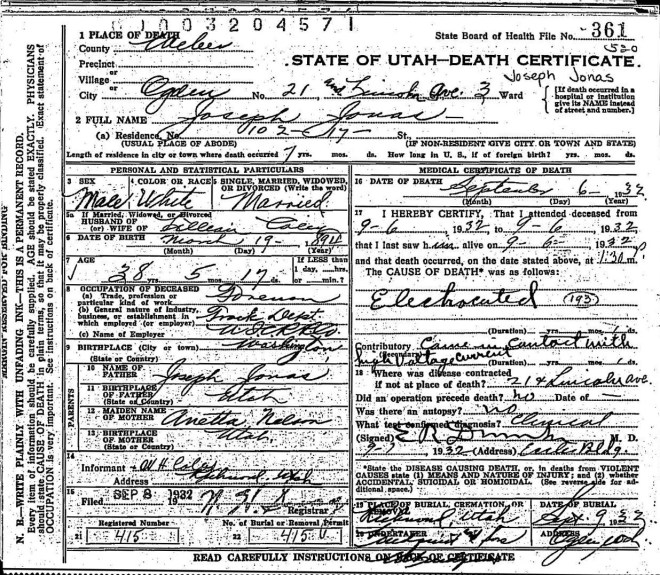 0 0 0 3 2 0 4 5 7 1
1 PLACE OF DEATH
State Board of Health File No. 361
County Weber
530
Precinct
STATE OF UTAH—DEATH CERTIFICATE.
or
Village
Joseph Jonas
or
City Ogden No. 21 and Lincoln Ave. 3 Ward
[If death occurred in a hospital or institution give its NAME instead of street and number.]
2 FULL NAME Joseph Jonas
(a) Residence, No. 102-17- St.,
(USUAL PLACE OF ABODE) (IF NON-RESIDENT GIVE CITY OR TOWN AND STATE)
Length of residence in city or town where death occurred 7 yrs. mos. ds. How long in U. S., if of foreign birth? yrs. mos. ds.
PERSONAL AND STATISTICAL PARTICULARS
3 SEX Male
4 COLOR OR RACE White
5 SINGLE, MARRIED, WIDOWED, OR DIVORCED (Write the word) Married
5a If Married, Widowed, or Divorced
HUSBAND OF
(or) WIFE OF Lillian
6 DATE OF BIRTH March 19- 1894
(Month) (Day) (Year)
7 AGE
38 5 17
If LESS than
1 day, ....hrs.
or ....min.?
8 OCCUPATION OF DECEASED
(a) Trade, profession or particular kind of work Foreman
(b) General nature of industry, business, or establishment in which employed (or employer) Track Dept.
(c) Name of Employer
9 BIRTHPLACE (City or town) Washington
(State or Country)
PARENTS
10 NAME OF FATHER Joseph Jonas
11 BIRTHPLACE OF FATHER Utah
(State or Country)
12 MAIDEN NAME OF MOTHER Anetta Nelson
13 BIRTHPLACE OF MOTHER Utah
(State or Country)
14
Informant W H
Address Richmond, Utah
15
Filed SEP 8 1932
Registrar
21 Registered Number 415
22 No. of Burial or Removal Permit 415
MEDICAL CERTIFICATE OF DEATH
16 DATE OF DEATH September 6- 1932
(Month) (Day) (Year)
17 I HEREBY CERTIFY, That I attended deceased from
9-6- 1932 to 9-6- 1932
that I last saw him alive on 9-6- 1932
and that death occurred, on the date stated above, at 1:30 m.
The CAUSE OF DEATH* was as follows:
Electrocuted (193)
(Duration) yrs. mos. ds.
Contributory Came in contact with
(Secondary) high voltage current
(Duration) yrs. mos. ds.
18 Where was disease contracted
if not at place of death? 21 & Lincoln Ave.
Did an operation precede death? No Date of —
Was there an autopsy? No
What test confirmed diagnosis? Clinical
(Signed) E R M. D.
9-7 1932 (Address) Bldg.
*State the DISEASE CAUSING DEATH, or, in deaths from VIOLENT CAUSES state (1) MEANS AND NATURE OF INJURY; and (2) whether ACCIDENTAL SUICIDAL OR HOMICIDAL. (See reverse side for additional space.)
19 PLACE OF BURIAL, CREMATION, OR REMOVAL Richmond Utah
DATE OF BURIAL Sept. 9 1932
20 UNDERTAKER
ADDRESS Ogden Utah
READ CAREFULLY INSTRUCTIONS ON BACK OF CERTIFICATE
MARGIN RESERVED FOR BINDING
N. B.—WRITE PLAINLY WITH UNFADING INK—THIS IS A PERMANENT RECORD.
Every item of information should be carefully supplied. AGE should be stated EXACTLY. PHYSICIANS
should state CAUSE OF DEATH in plain terms, so that it may be properly classified. Exact statement of
OCCUPATION is very important. See instructions on back of certificate.